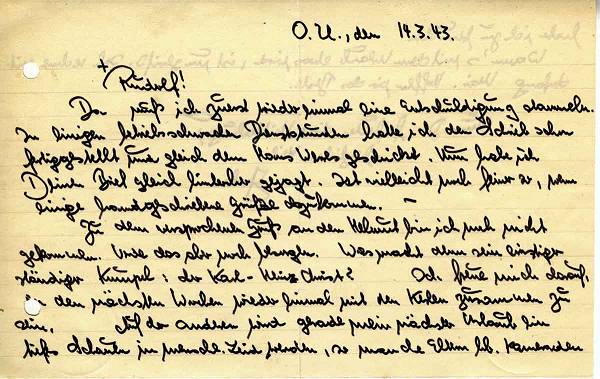 O.U., den 14.3.43.
Rudolf!
Da muß ich zuerst wieder einmal eine Entschuldigung stammeln.
In einigen betriebsschwachen Dienststunden hatte ich den Schrieb schon
fertiggestellt und gleich dem Hans geschickt. Nun habe ich
Deinen Brief gleich hinterher gejagt. Ist vielleicht noch feiner so, wenn
einige handgeschriebene Grüße dazukommen. —
Zu dem versprochenen Gruß an den Helmut bin ich noch nicht
gekommen. Werde das aber noch besorgen. Was macht denn sein einstiger
ständiger Kumpel: der Karl-Heinz Christ? Ich freue mich darauf,
in den nächsten Wochen wieder einmal mit den Kerlen zusammen zu
sein. Auf der anderen wird gerade mein nächster Urlaub ein
tiefes Schauen in Leid werden, so manche Eltern lb. Kameraden